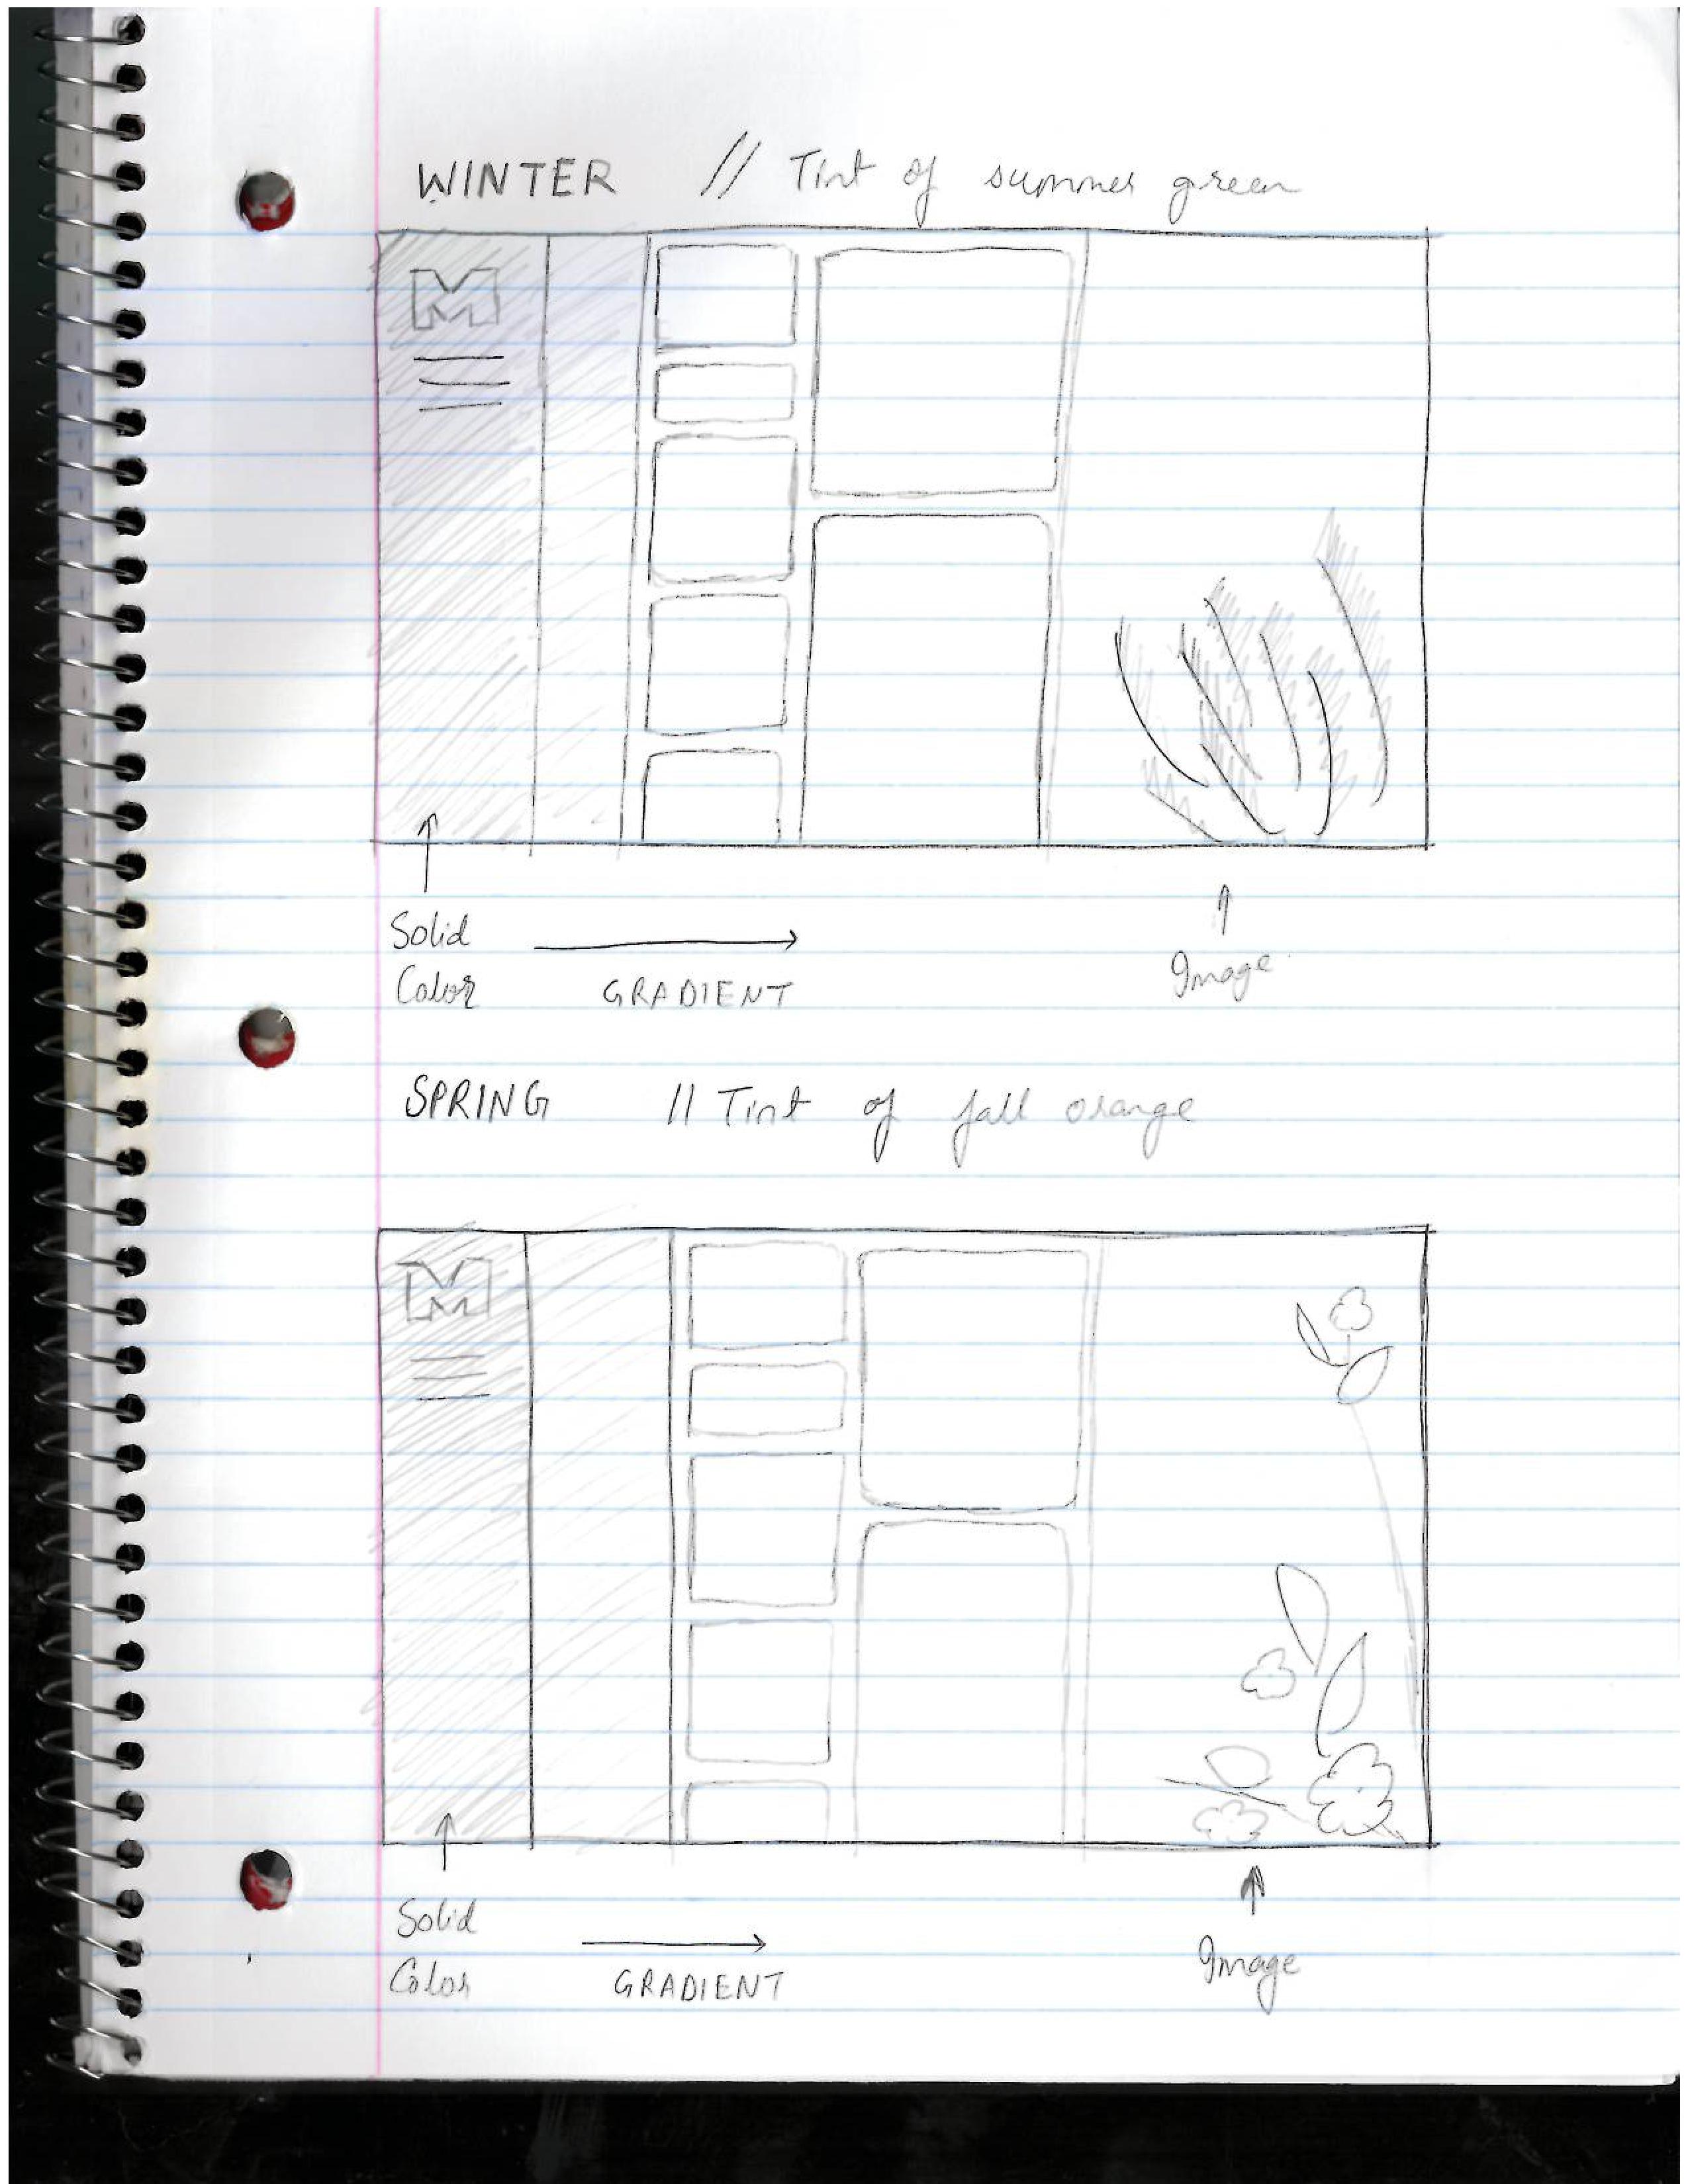 WINTER // Tint of summer green
M
Solid
Color
GRADIENT
Image
SPRING // Tint of fall orange
M
Solid
Color
GRADIENT
Image